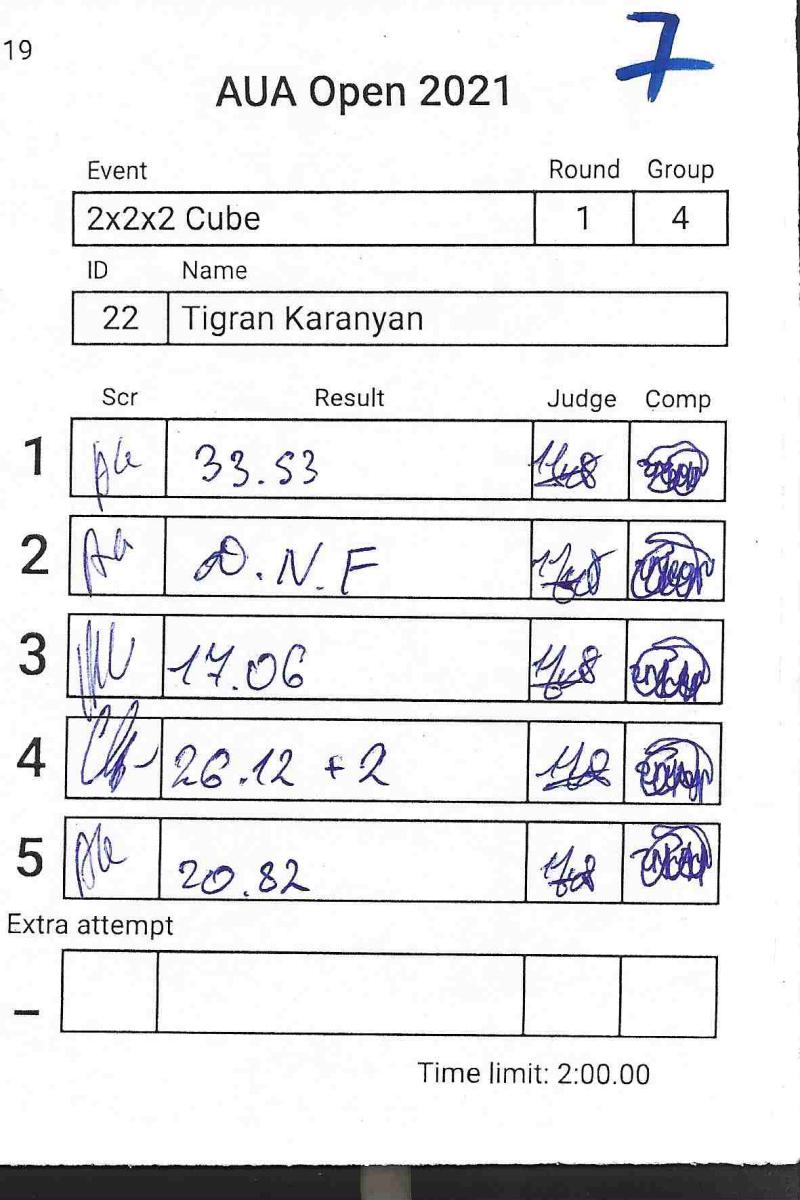 19
7
AUA Open 2021
Event Round Group
2x2x2 Cube 1 4
ID Name
22 Tigran Karanyan
Scr Result Judge Comp
1 33.53
2 D.N.F
3 17.06
4 26.12 +2
5 20.82
Extra attempt
–
Time limit: 2:00.00